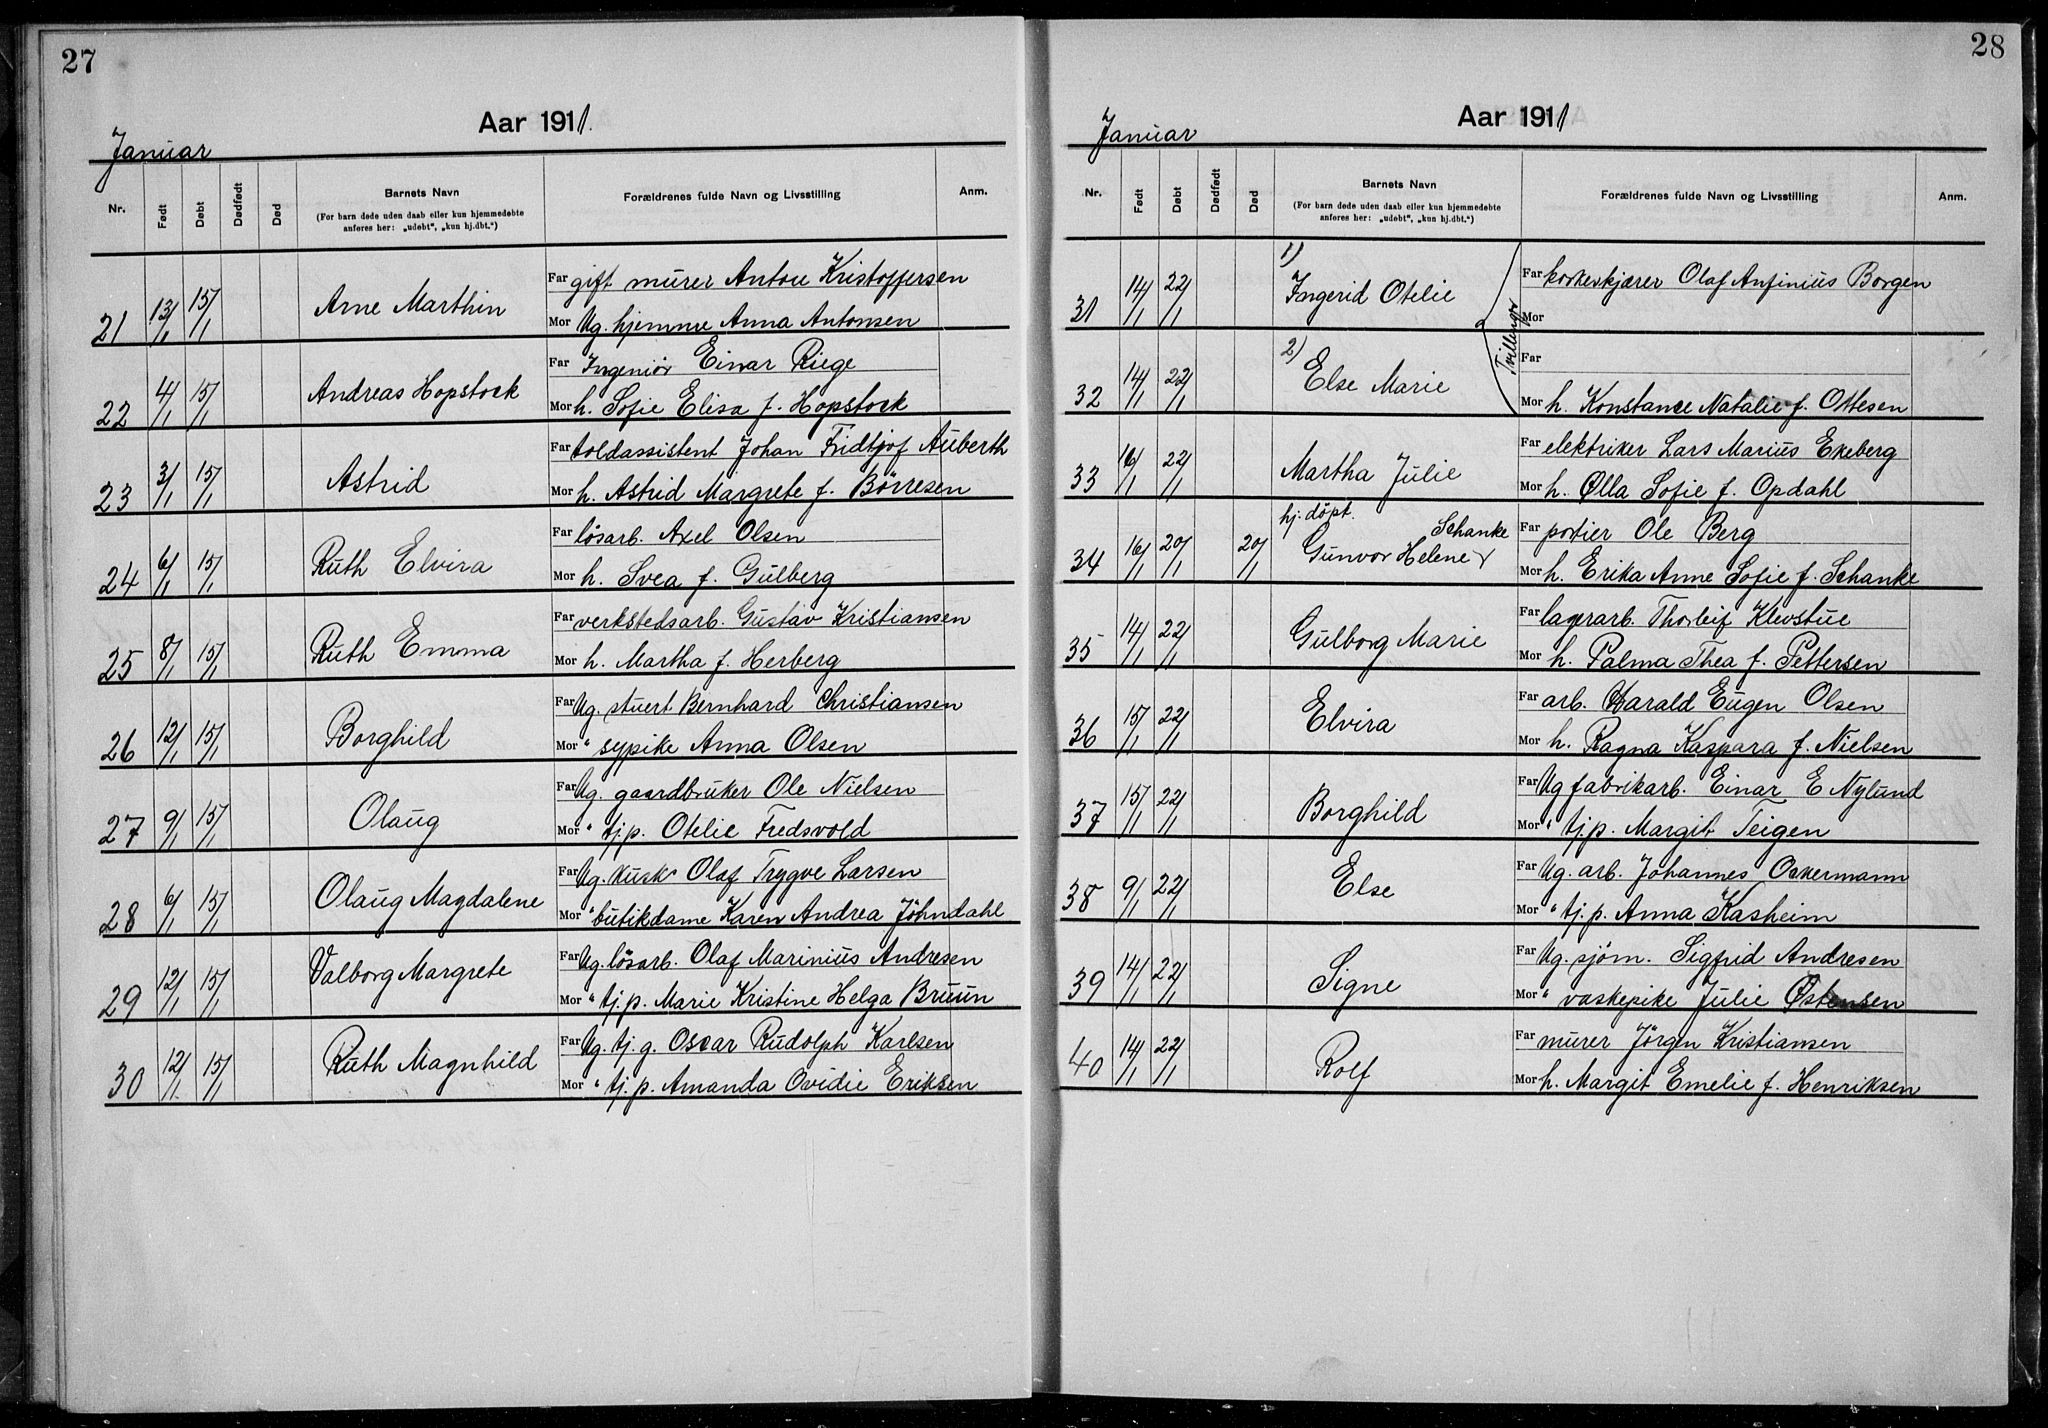 27
Aar 1911.
Januar
Nr.
Født
Døbt
Dødfødt
Død
Barnets Navn
(For barn døde uden daab eller kun hjemmedøbte
anføres her: „udøbt“, „kun hj.dbt.“)
Forældrenes fulde Navn og Livsstilling
Anm.
21 13/1 15/1 Arne Marthin
Far gift murer Anton Kristoffersen
Mor Ug. hjemme Anna Antonsen
22 4/1 15/1 Andreas Hopstock
Far Ingeniør Einar Riege
Mor h. Sofie Elisa f. Hopstock
23 3/1 15/1 Astrid
Far toldassistent Johan Fridtjof Auberth
Mor h. Astrid Margrete f. Börresen
24 6/1 15/1 Ruth Elvira
Far lösarb. Axel Olsen
Mor h. Svea f. Gulberg
25 8/1 15/1 Ruth Emma
Far verkstedsarb. Gustav Kristiansen
Mor h. Martha f. Herberg
26 12/1 15/1 Borghild
Far Ug. stuert Bernhard Christiansen
Mor " sypike Anna Olsen
27 9/1 15/1 Olaug
Far Ug. gaardbruker Ole Nielsen
Mor " tj.p. Otelie Fredsvold
28 6/1 15/1 Olaug Magdalene
Far Ug. kusk Olaf Trygve Larsen
Mor " butikdame Karen Andrea Jöhndahl
29 12/1 15/1 Valborg Margrete
Far Ug. lösarb. Olaf Marinius Andresen
Mor " tj.p. Marie Kristine Helga Bruun
30 12/1 15/1 Ruth Magnhild
Far Ug. tj. g. Oscar Rudolph Karlsen
Mor " tj. p. Amanda Ovidie Eriksen
28
Aar 1911
Januar
Nr.
Født
Døbt
Dødfødt
Død
Barnets Navn
(For barn døde uden daab eller kun hjemmedøbte
anføres her: „udøbt“, „kun hj.dbt.“)
Forældrenes fulde Navn og Livsstilling
Anm.
31 14/1 22/1 1) Ingerid Otelie
Far korkeskjærer Olaf Anfinius Borgen
Mor
Tvillinger
32 14/1 22/1 2) Else Marie
Far
Mor h. Konstance Natalie f. Ottesen
33 16/1 22/1 Martha Julie
Far elektriker Lars Marius Ekeberg
Mor h. Ølla Sofie f. Opdahl
hj. döpt.
Schanke
34 16/1 20/1 20/1 Gunvor Helene
Far portier Ole Berg
Mor h. Erika Anne Sofie f. Schanke
35 14/1 22/1 Gulborg Marie
Far lagerarb. Thorleif Klevstue
Mor h. Palma Thea f. Pettersen
36 15/1 22/1 Elvira
Far arb. Harald Eugen Olsen
Mor h. Ragna Kaspara f. Nielsen
37 15/1 22/1 Borghild
Far Ug fabrikarb. Einar E Nylund
Mor " tj.p. Margit Teigen
38 9/1 22/1 Else
Far Ug. arb. Johannes Ockermann
Mor " tj. p. Anna Kasheim
39 14/1 22/1 Signe
Far Ug. sjöm. Sigfrid Andresen
Mor " vaskepike Julie Østensen
40 14/1 22/1 Rolf
Far murer Jörgen Kristiansen
Mor h. Margit Emelie f. Henriksen